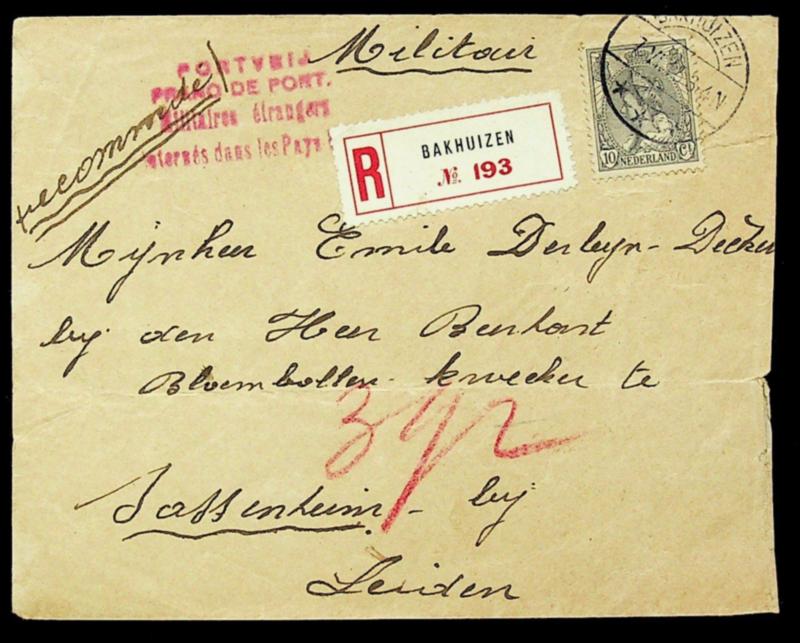 Militair
PORTVRIJ
FRANC DE PORT.
Militaires étrangers
internés dans les Pays
recommandé
R
BAKHUIZEN
№ 193
BAKHUIZEN
10 Ct
NEDERLAND
Mijnheer Emile Derluyn-Decker
by den Heer Beerhorst
Bloembollen kweeker te
392
Sassenheim - by
Leiden